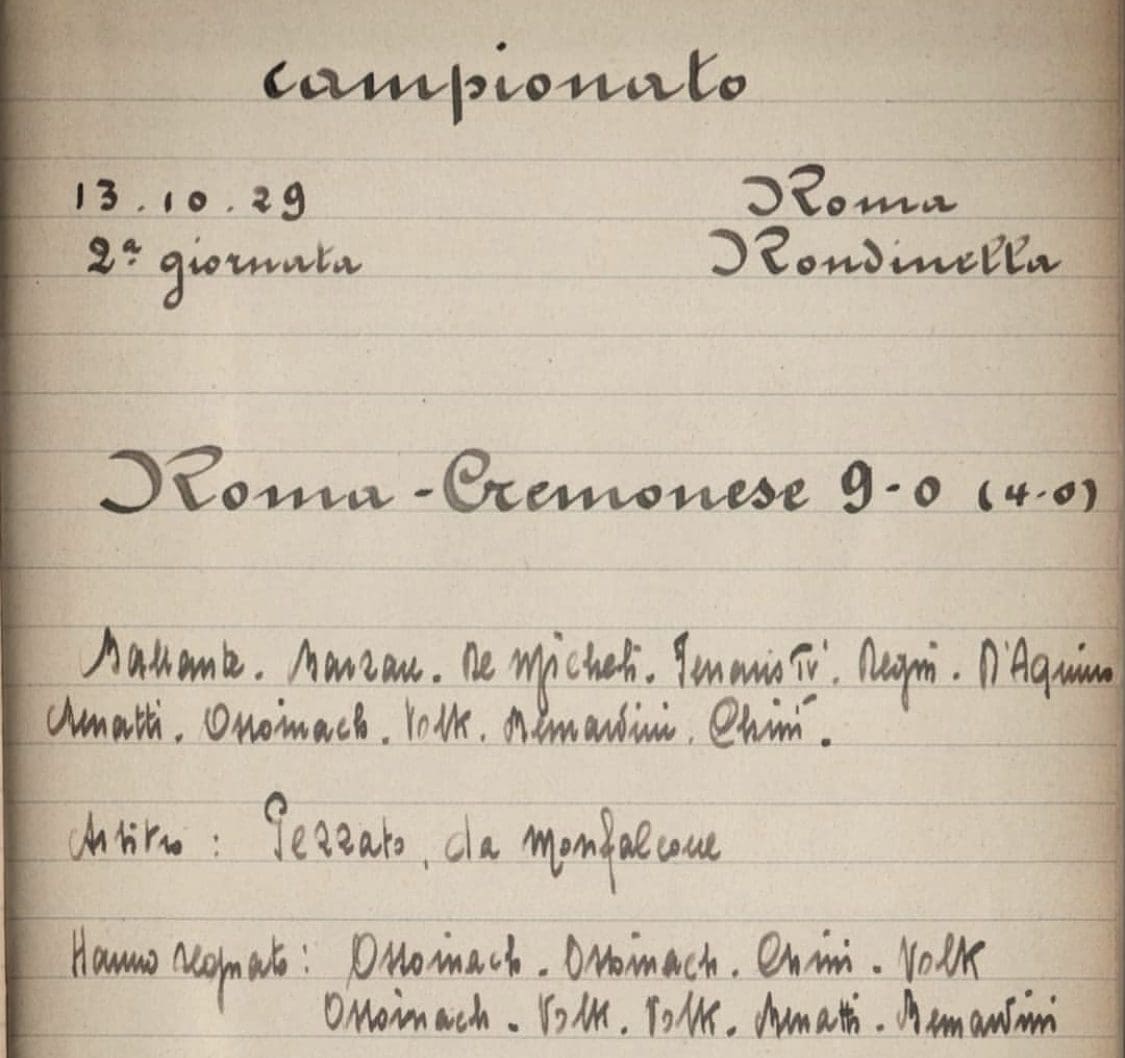 Campionato
13.10.29 Roma
2ª giornata Rondinella
Roma - Cremonese 9-0 (4-0)
Ballante. Barzan. De Micheli. Ferraris IV. Degni. D'Aquino
Benatti. Ossoinach. Volk. Bernardini. Chini.
Arbitro: Pezzato, da Monfalcone
Hanno segnato: Ossoinach. Ossoinach. Chini. Volk
Ossoinach. Volk. Volk. Benatti. Bernardini